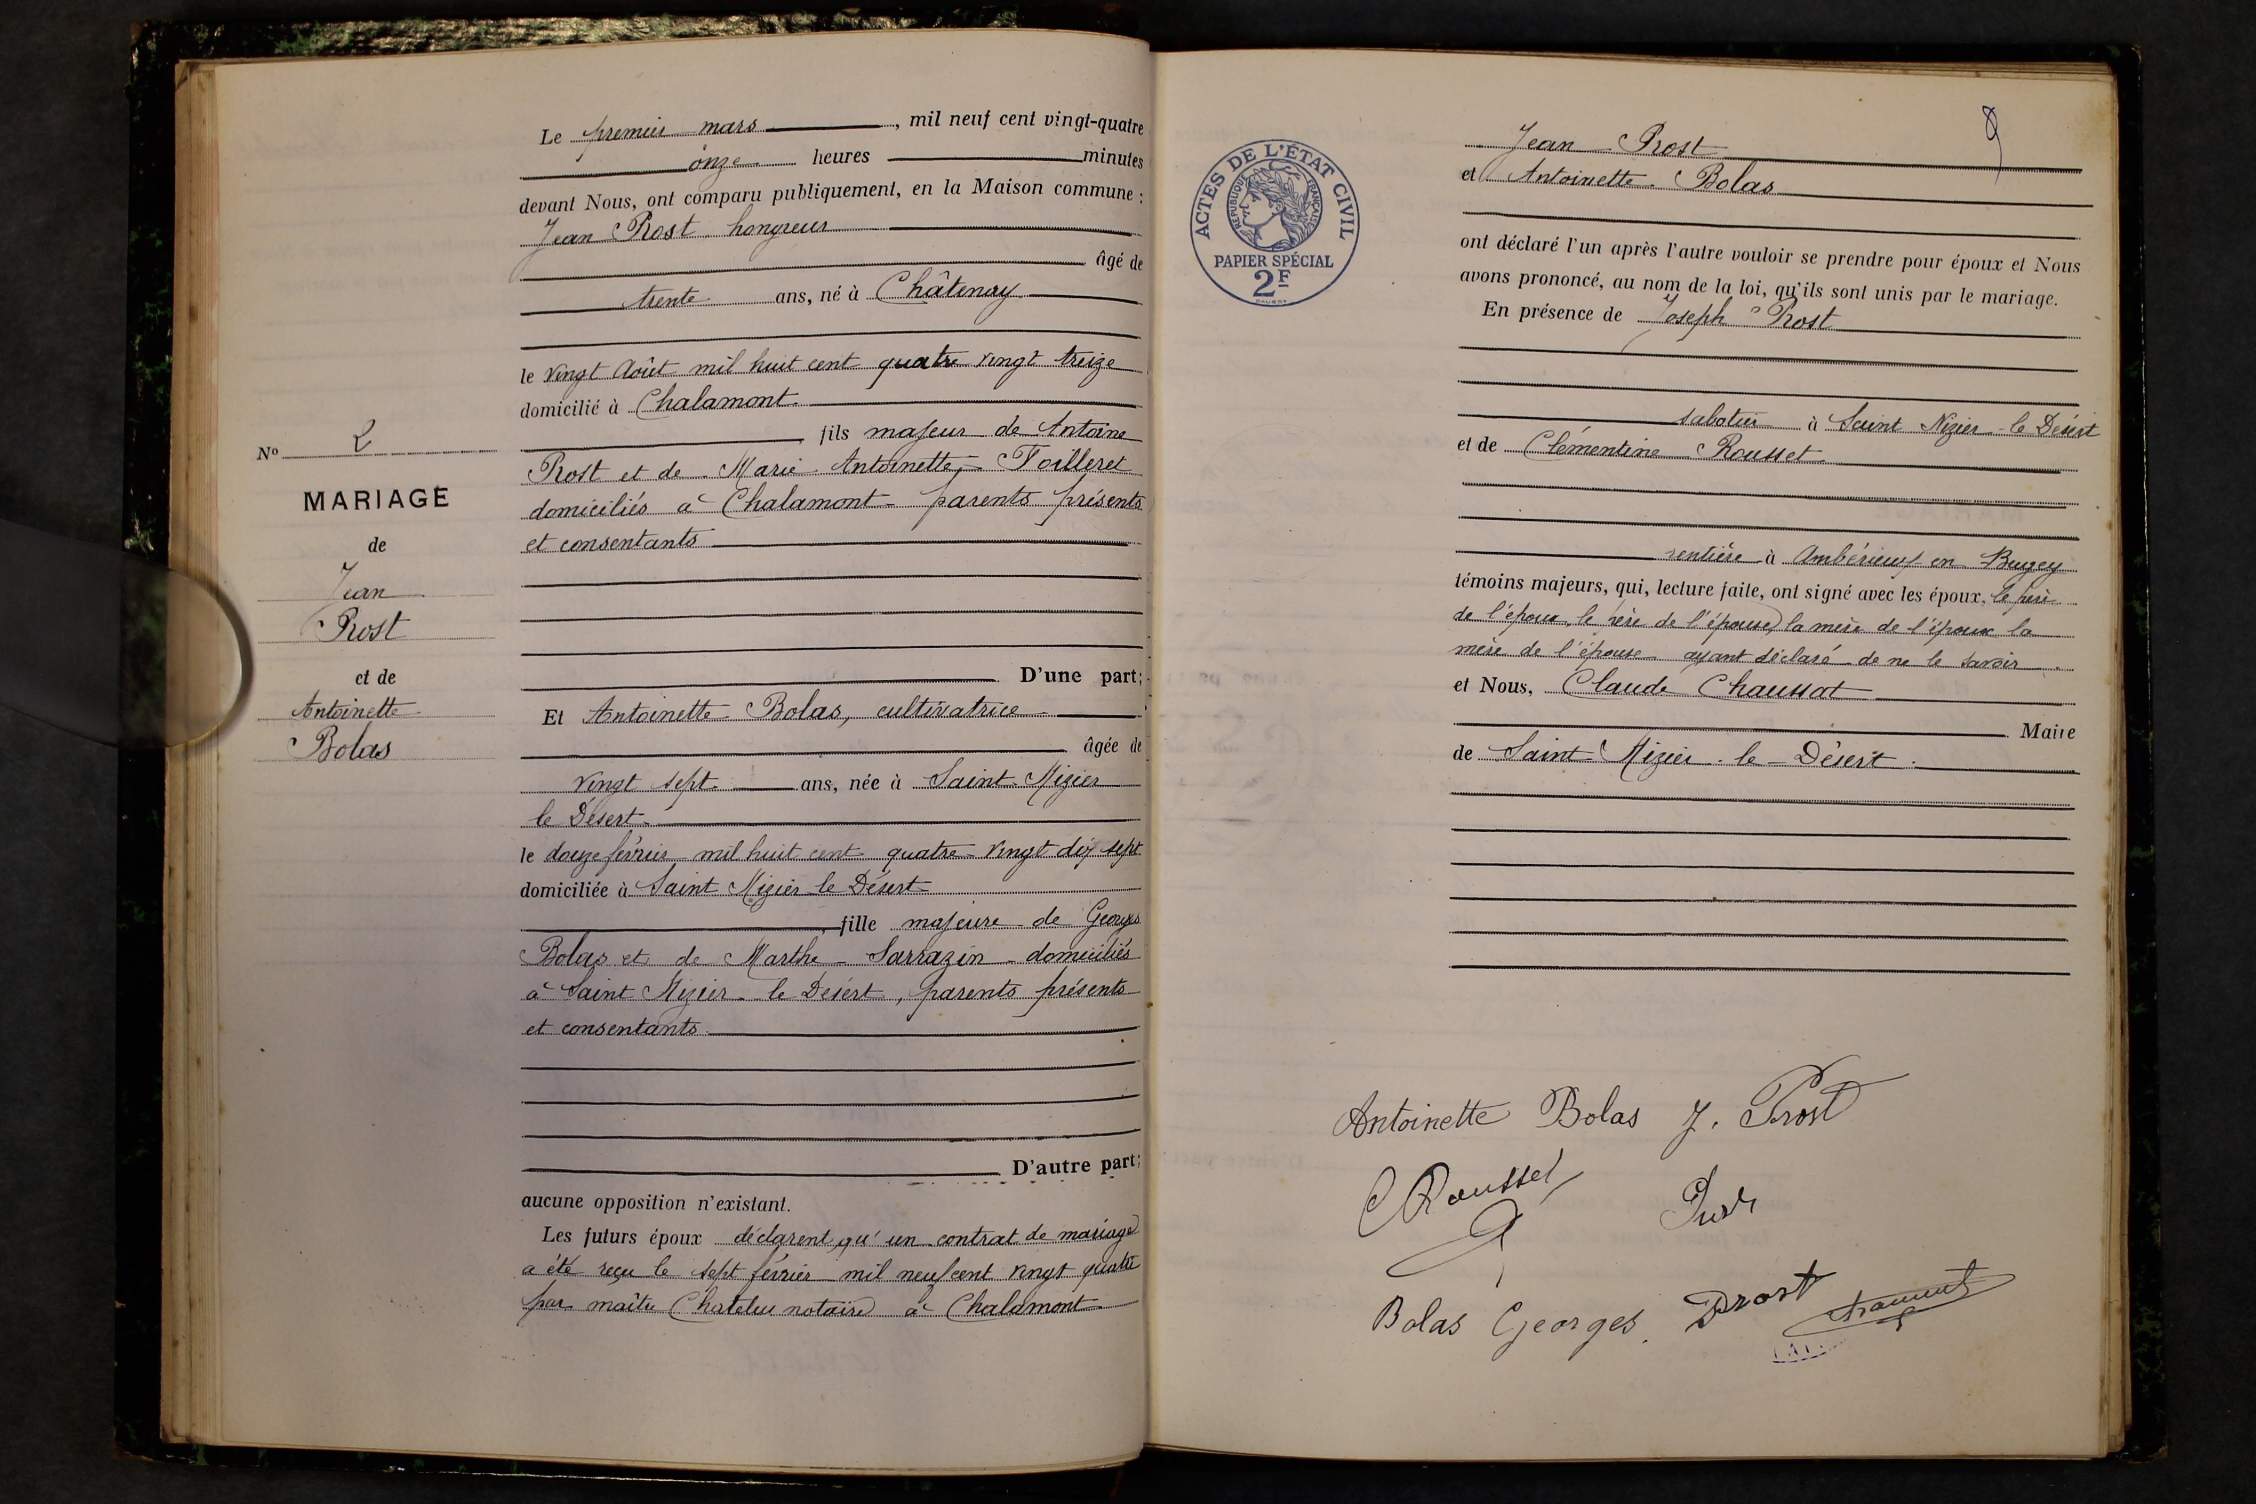 Le premier mars, mil neuf cent vingt-quatre
onze heures minutes
devant Nous, ont comparu publiquement, en la Maison commune :
Jean Prost hongreur
âgé de
trente ans, né à Châtenay
le vingt Août mil huit cent quatre vingt treize
domicilié à Chalamont.
fils majeur de Antoine
Prost et de Marie Antoinette Foilleret
domiciliés à Chalamont parents présents
et consentants
No 2
MARIAGE
de
Jean
Prost
et de
Antoinette
Bolas
D'une part;
Et Antoinette Bolas, cultivatrice
âgée de
vingt sept ans, née à Saint Nizier
le Désert
le douze février mil huit cent quatre vingt dix sept
domiciliée à Saint Nizier le Désert
fille majeure de Georges
Bolas et de Marthe Sarrazin domiciliés
à Saint Nizier le Désert, parents présents
et consentants
D'autre part;
aucune opposition n'existant.
Les futurs époux déclarent qu'un contrat de mariage
a été reçu le sept février mil neuf cent vingt quatre
par maître Chatelus notaire à Chalamont
9
ACTES DE L'ÉTAT CIVIL
RÉPUBLIQUE FRANÇAISE
PAPIER SPÉCIAL
2F
Jean Prost
et Antoinette Bolas
ont déclaré l'un après l'autre vouloir se prendre pour époux et Nous
avons prononcé, au nom de la loi, qu'ils sont unis par le mariage.
En présence de Joseph Prost
sabotier à Saint Nizier le Désert
et de Clémentine Rousset
rentière à Ambérieux en Bugey
témoins majeurs, qui, lecture faite, ont signé avec les époux, le père
de l'époux, le père de l'épouse, la mère de l'époux la
mère de l'épouse ayant déclaré de ne le savoir.
et Nous, Claude Chaussat
Maire
de Saint Nizier le Désert.
Antoinette Bolas J. Prost
C Rousset
Bolas Georges. Prost